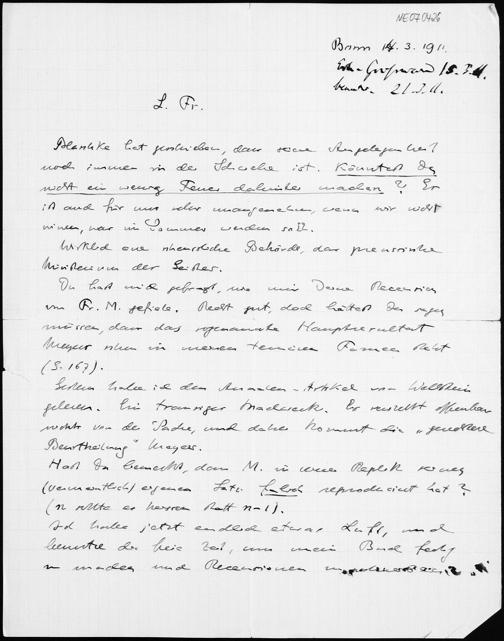 NE070426
Bonn 14.3.1911
Erh. Greifswald 15.3.11.
beantw. 21.3.11.
L. Fr.
Blaschke hat geschrieben, dass seine Angelegenheit
noch immer in der Schwebe ist. Könntest Du
nicht ein wenig Feuer dahinter machen? Er
ist auch für uns sehr unangenehm, wenn wir nicht
wissen, was im Sommer werden soll.
Wirklich eine scheussliche Behörde, das preussische
Ministerium der Geister.
Du hast mich gefragt, wie mir Deine Recension
von Fr. M. gefiele. Recht gut, doch hättest Du sagen
müssen, dass das sogenannte Hauptresultat
Meyers schon in meinen Ferneren
(S. 167).
Gestern habe ich den Annalen-Artikel von Wellstein
gelesen. Ein trauriges Machwerk. Er versteht offenbar
nichts von der Sache, und daher kommt die „
Beurtheilung" Meyers.
Hast Du bemerkt, dass M. in seiner Replik seinen
(vermeintlich) eigenen Satz falsch reproducirt hat?
(n sollte es heissen statt n-1).
Ich habe jetzt endlich etwas Luft, und
benutze die freie Zeit, um mein Buch fertig
zu machen und Recensionen zu